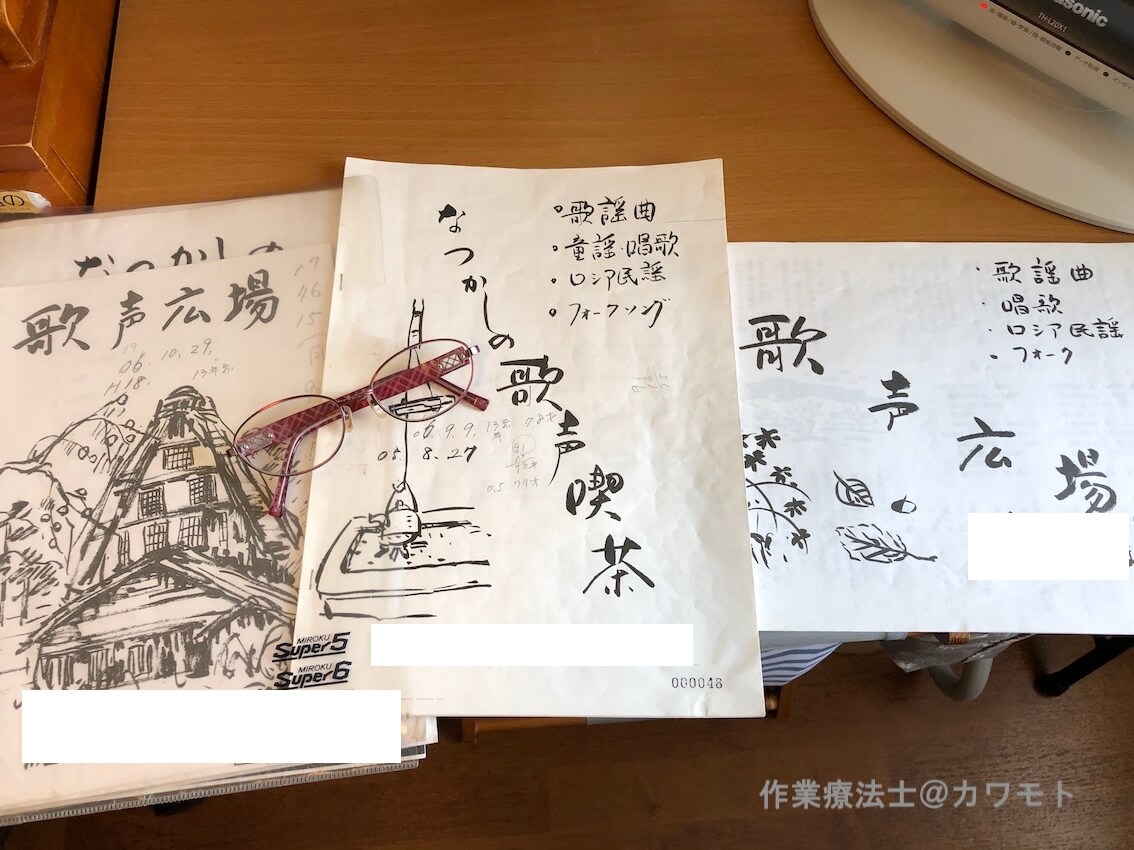 なつかしの
歌声広場
06.10.29.
H18.
なつかしの歌声喫茶
・歌謡曲
・童謡・唱歌
・ロシア民謡
・フォークソング
05.8.27
MIROKU
Super5
MIROKU
Super6
000048
歌声広場
・歌謡曲
・唱歌
・ロシア民謡
・フォーク
Panasonic
TH-L20X1
作業療法士@カワモト